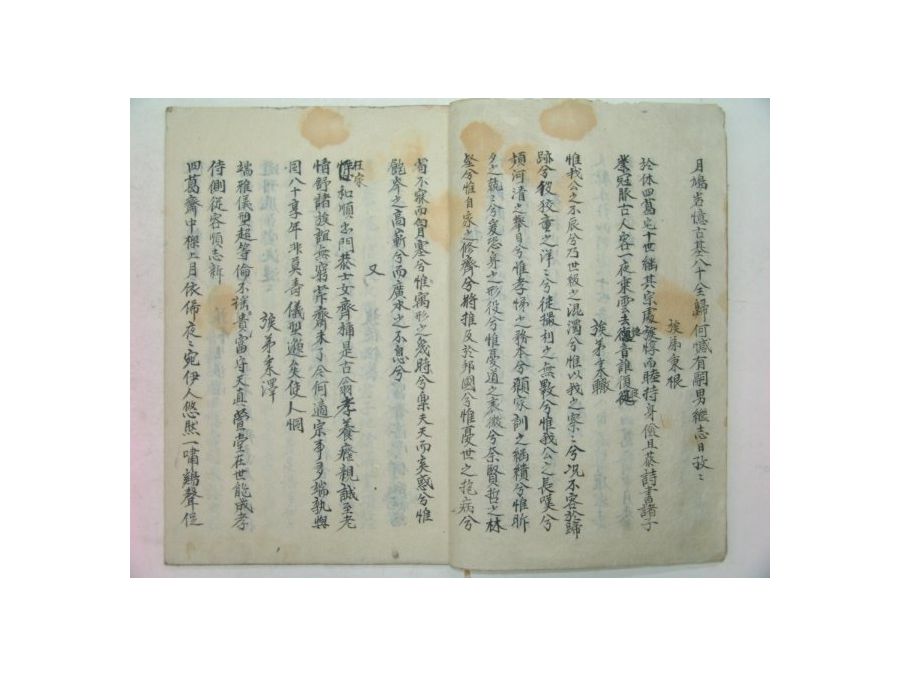 月鳩岩憶古基八十全歸何憾有嗣男繼志日孜〻
族弟秉根
於休四葛宅十世緖其宗處族惇而睦持身儉且恭詩書諸子
業冠服古人容一夜乘雲去德音誰復從
族弟秉
惟我公之不辰兮乃世級之混濁兮惟以我之察〻兮况不容於歸
跡兮彼狡童之洋〻兮徒穢利之無斁兮惟我公之長嘆兮
頻河淸之擧目兮惟孝悌之務本兮顧家訓之緖績兮惟昕
夕之兢〻兮爰恐身之形役兮惟憂道之衰微兮奈賢哲之林
壑兮惟自家之修齊兮將推及於邦國兮惟憂世之抱病兮
宵不寐而胷塞兮惟寓形之幾時兮樂夫天而奚惑兮惟
鮑岑之高嶄兮而廣水之不息兮
又
在家
惇和順出門恭士女齊稱是古翁孝養癃親誠至老
情舒諸族誼無窮霽齋未了今何適宗事多端孰與
同八十享年非莫壽儀型邈矣使人恫
族弟秉澤
端雅儀型超等倫不稱貴富守天眞營堂在世能成孝
侍側從容順志新
四葛齋中樑上月依俙夜〻宛伊人悠然一嘯鷄聲促